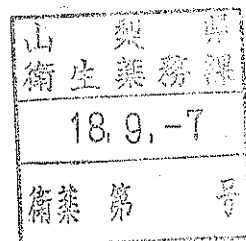 山梨県
衛生薬務課
18.9.-7
衛薬 第 号